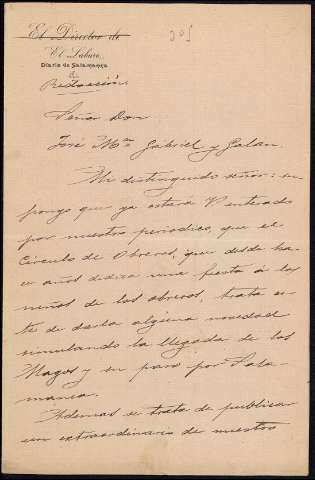 El Director de
205
El Lábaro
Diario de Salamanca
Redacción
Señor Don
José Mª Gabriel y Galan.
Mi distinguido señor: su
pongo que ya estará V enterado
por nuestro periodico, que el
Círculo de Obreros, que desde ha-
ce años dedica una fiesta á los
niños de los obreros, trata es
te de darla alguna novedad
simulando la llegada de los
Magos y su paso por Sala-
manca.
Ademas se trata de publicar
un extraordinario de nuestro